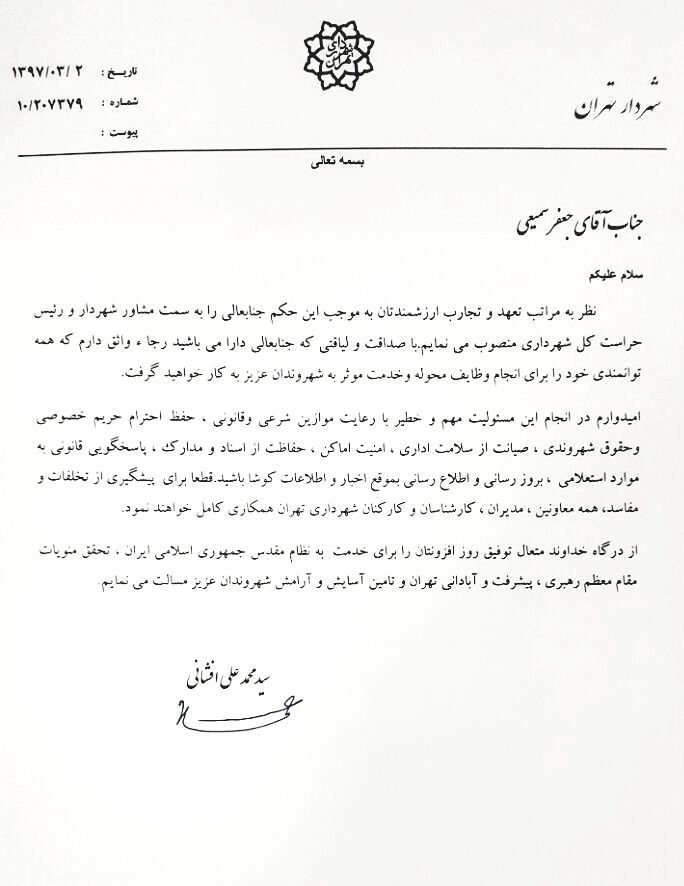 شهرداری تهران
تاریخ : ۱۳۹۷/۰۳/ ۲
شماره : ۱۰/۲۰۷۳۷۹
پیوست :
شهردار تهران
بسمه تعالی
جناب آقای جعفر سمیعی
سلام علیکم
نظر به مراتب تعهد و تجارب ارزشمندتان به موجب این حکم جنابعالی را به سمت مشاور شهردار و رئیس
حراست کل شهرداری منصوب می نمایم.با صداقت و لیاقتی که جنابعالی دارا می باشید رجا ء واثق دارم که همه
توانمندی خود را برای انجام وظایف محوله وخدمت موثر به شهروندان عزیز به کار خواهید گرفت.
امیدوارم در انجام این مسئولیت مهم و خطیر با رعایت موازین شرعی وقانونی ، حفظ احترام حریم خصوصی
وحقوق شهروندی ، صیانت از سلامت اداری ، امنیت اماکن ، حفاظت از اسناد و مدارک ، پاسخگویی قانونی به
موارد استعلامی ، بروز رسانی و اطلاع رسانی بموقع اخبار و اطلاعات کوشا باشید.قطعا برای پیشگیری از تخلفات و
مفاسد، همه معاونین ، مدیران ، کارشناسان و کارکنان شهرداری تهران همکاری کامل خواهند نمود.
از درگاه خداوند متعال توفیق روز افزونتان را برای خدمت به نظام مقدس جمهوری اسلامی ایران ، تحقق منویات
مقام معظم رهبری ، پیشرفت و آبادانی تهران و تامین آسایش و آرامش شهروندان عزیز مسالت می نمایم.
سید محمد علی افشانی